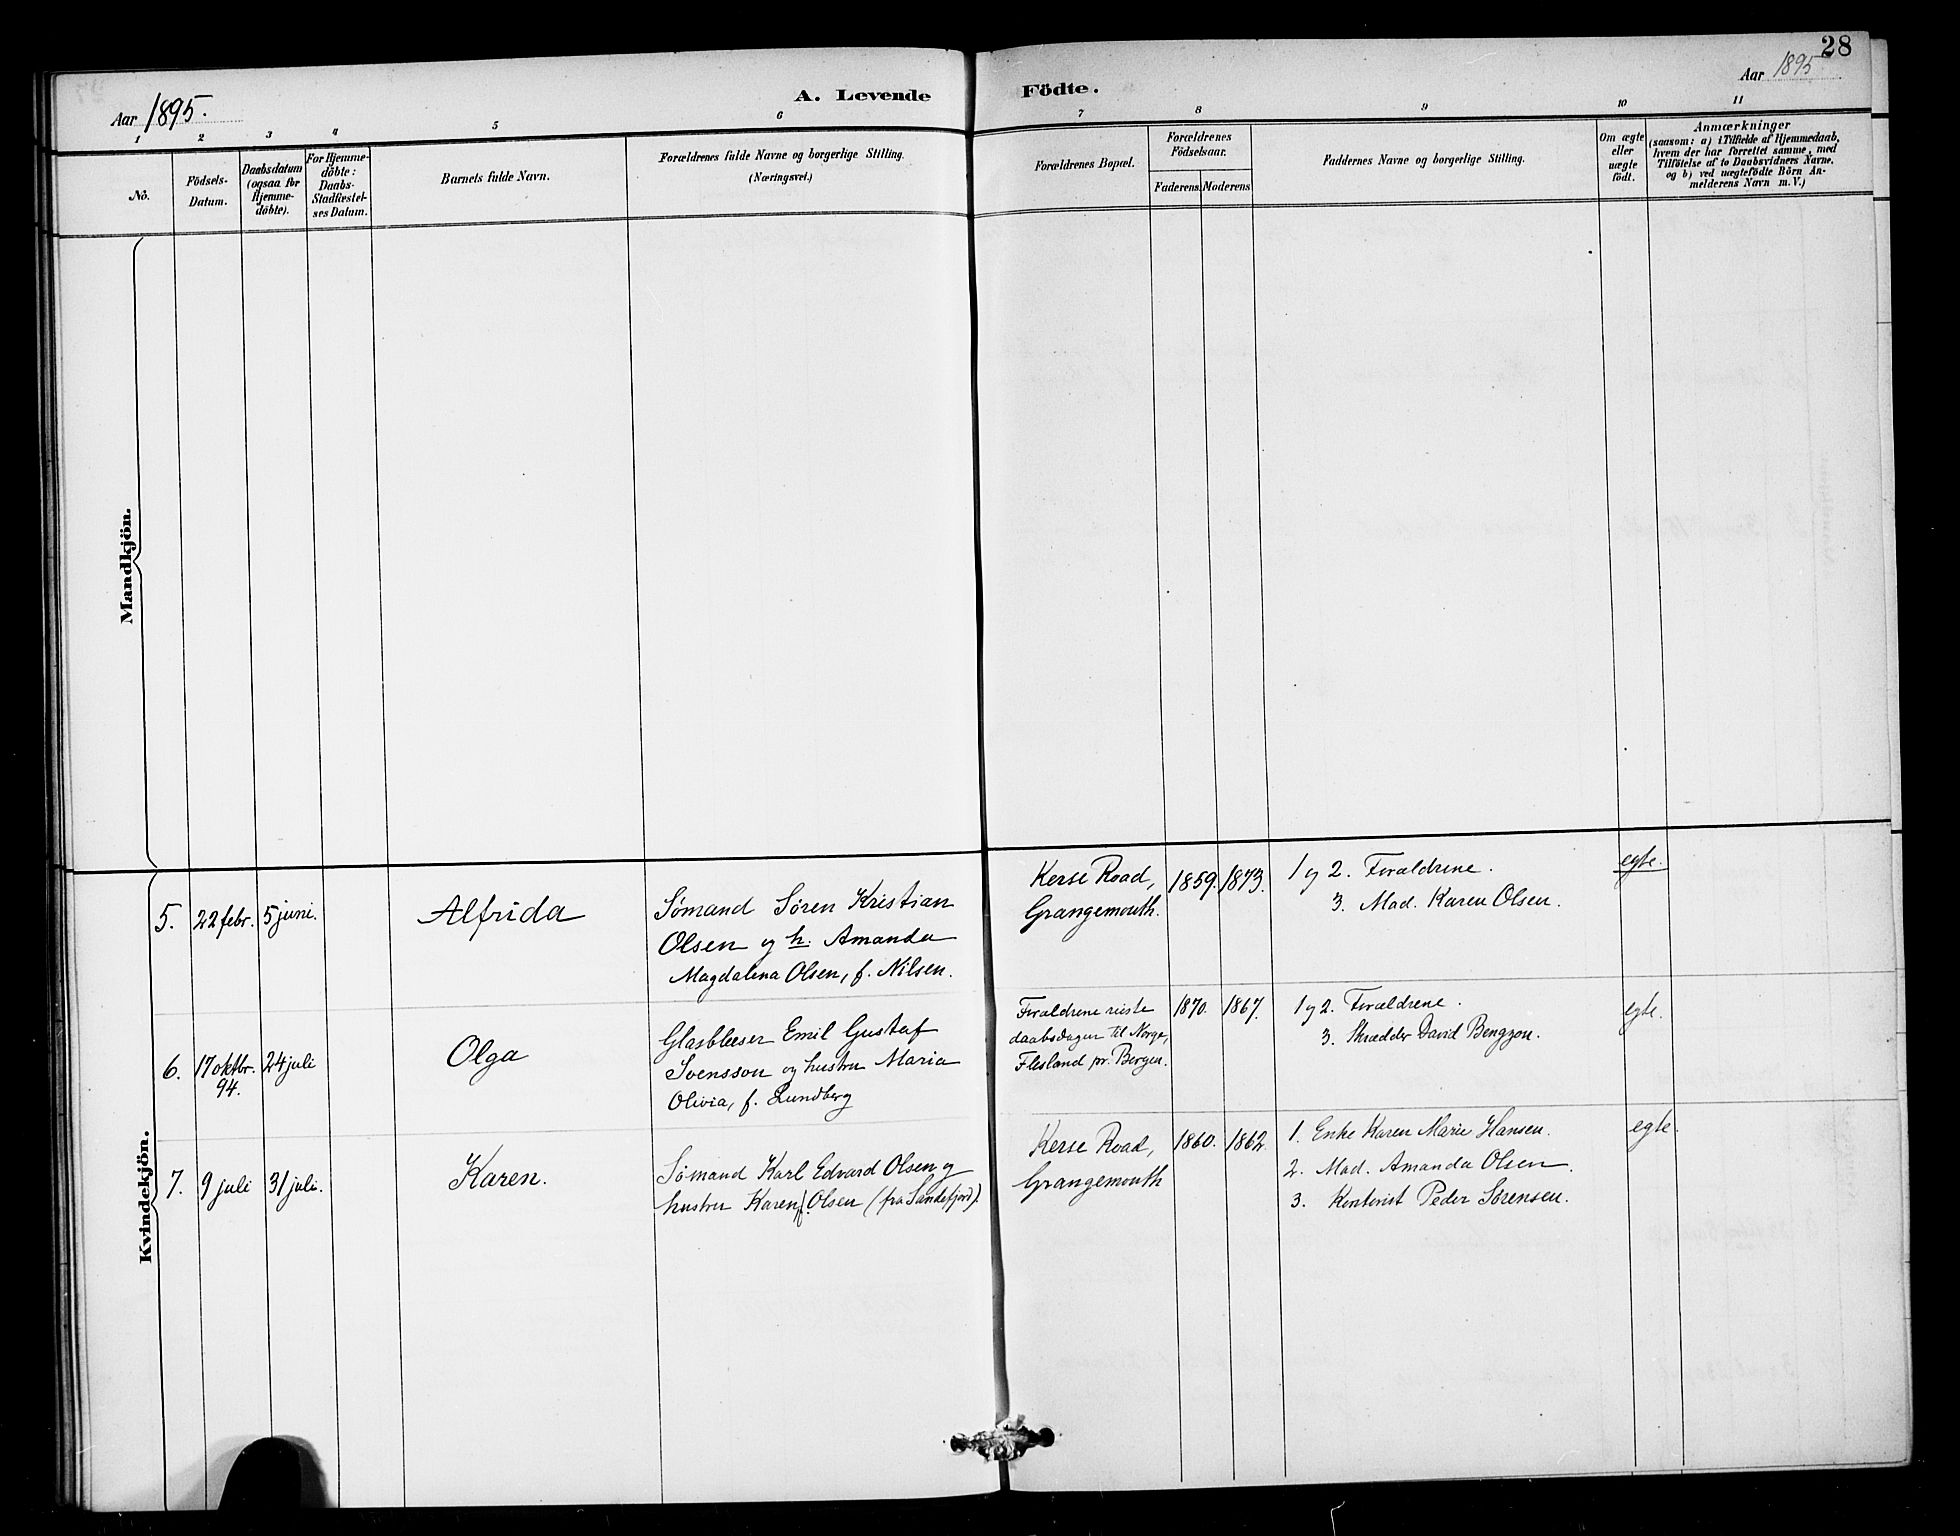 28
Aar 1895.
A. Levende Födte.
Aar 1895
1 2 3 4 5 6 7 8 9 10 11
No.
Födsels-
Datum.
Daabsdatum
(ogsaa for
Hjemme-
döbte).
For Hjemme-
döbte:
Daabs-
Stadfæstel-
ses Datum.
Barnets fulde Navn.
Forældrenes fulde Navne og borgerlige Stilling.
(Næringsvei.)
Forældrenes Bopæl.
Forældrenes
Födselsaar.
Faderens. Moderens.
Faddernes Navne og borgerlige Stilling.
Om ægte
eller
uægte
født.
Anmærkninger
(saasom: a) i Tilfælde af Hjemmedaab,
hvem der har forrettet samme, med
Tilföielse af to Daabsvidners Navne.
og b) ved uægtefödte Börn An-
melderens Navn m. V.)
Mandkjön.
Kvindekjön.
5. 22 febr. 5 juni.
Alfrida
Sømand Søren Kristian
Olsen og h. Amanda
Magdalena Olsen, f. Nilsen.
Kerse Road,
Grangemouth.
1859. 1873.
1 og 2. Forældrene.
3. Mad. Karen Olsen.
egte.
6. 17 oktbr.
94.
24 juli
Olga
Glasblæser Emil Gustaf
Svensson og hustru Maria
Olivia, f. Lundberg
Forældrene reiste
daabsdagen til Norge,
Flesland pr. Bergen.
1870. 1867.
1 og 2. Forældrene.
3. Skrædder David Bengzon.
egte.
7. 9 juli 31 juli.
Karen.
Sømand Karl Edvard Olsen og
hustru Karen f. Olsen (fra Sandefjord).
Kerse Road,
Grangemouth
1860. 1862.
1. Enke Karen Marie Hansen.
2. Mad. Amanda Olsen.
3. Kontorist Peder Sørensen.
egte.